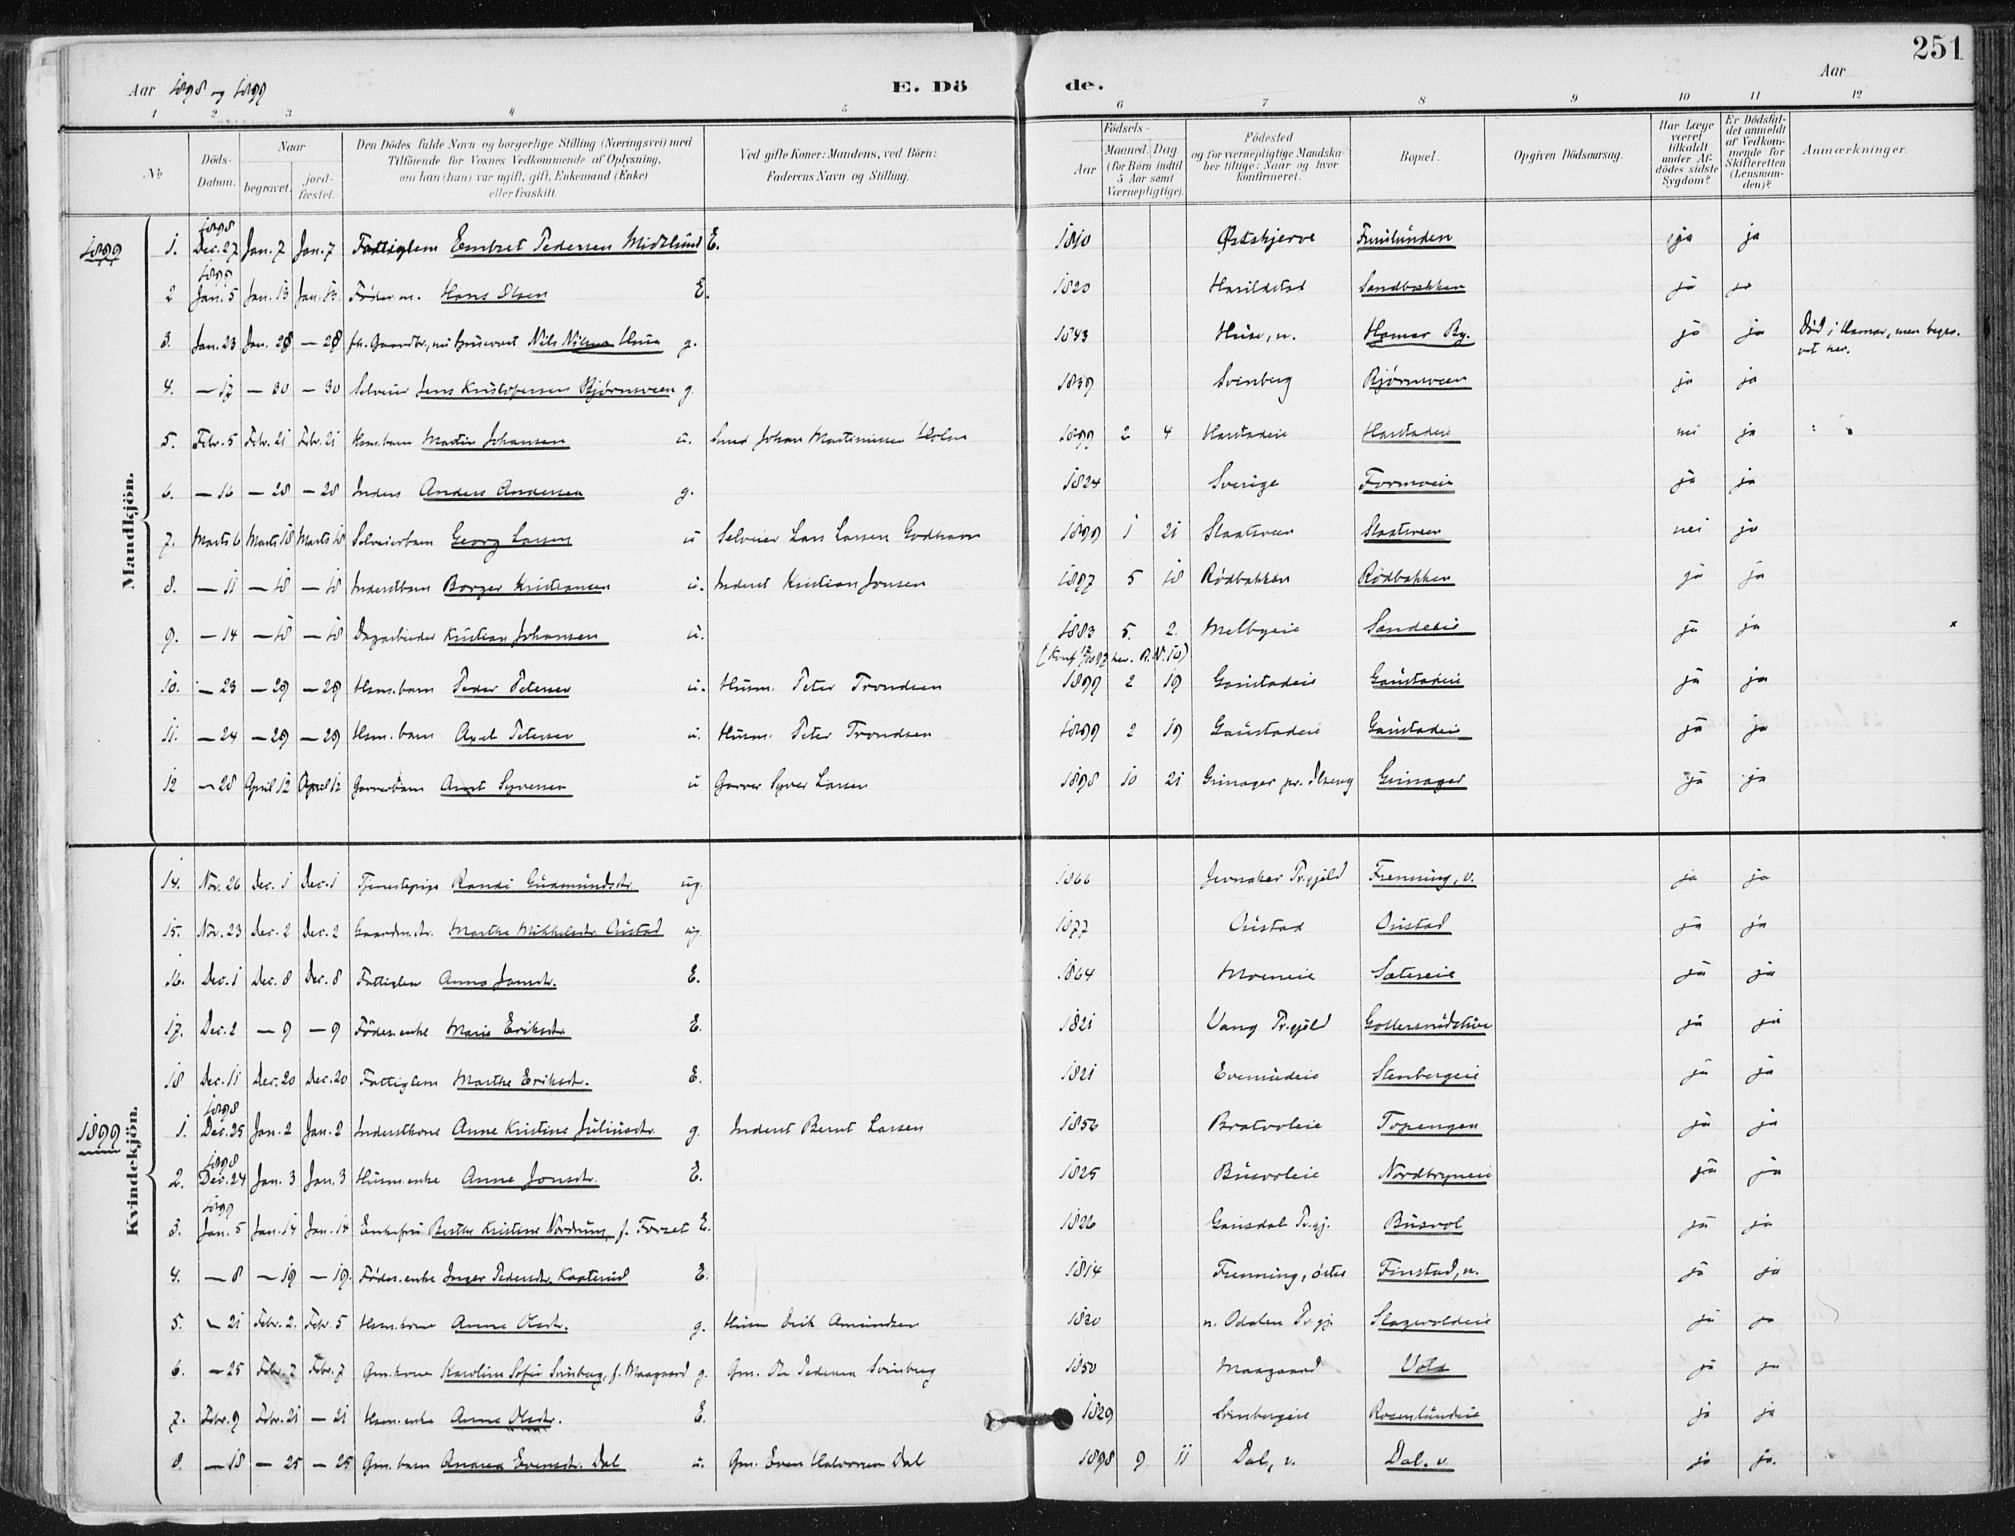 251
Aar 1898 og 1899 E. Dö de. Aar
1 2 3 4 5 6 7 8 9 10 11 12
№ Döds-Datum. Naar begravet. jordfæstet. Den Dödes fulde Navn og borgerlige Stilling (Næringsvei) med Tilföiende for Voxnes Vedkommende af Oplysning, om han (hun) var ugift, gift, Enkemand (Enke) eller fraskilt. Ved gifte Koner: Mandens, ved Börn: Faderens Navn og Stilling. Födsels- Aar Maaned. Dag. (for Börn indtil 5 Aar samt Værnepligtige). Födested og for værnepligtige Mandskaber tillige: Naar og hvor konfirmeret. Bopæl. Opgiven Dödsaarsag. Har Læge været tilkaldt under Afdödes sidste Sygdom? Er Dödsfaldet anmeldt af Vedkommende for Skifteretten (Lensmanden)? Anmærkninger.
Mandkjön.
1899 1. 1898 Dec. 27 Jan. 7 Jan. 7 Fattiglem Embret Pedersen Midtlund E. 1810 Østskjerve Furulunden ja ja
2 1899 Jan. 5 Jan. 13 Jan. 13 Føderm. Hans Olsen E. 1820 Harildstad Sandbakken ja ja
3. Jan. 23 Jan. 28 — 28 fh. Gaardbr., Nils Nilsen Huse g. 1843 Huse, n. Hamar By. ja ja Død i Hamar, men begravet her.
4. — 17 — 30 — 30 Selveier Jens Kristofersen Bjørnsveen g. 1839 Svinberg Bjørnsveen ja ja
5. Febr. 5 Febr. 21 Febr. 21 Hsm.barn Martin Johansen u. Smed Johan Martinussen Holm 1899 2 4 Harstadeie Harstadeie nei ja
6. — 16 — 28 — 28 Inders Anders Andersen g. 1824 Sverige Formoeie ja ja
7. Marts 6 Marts 18 Marts 18 Selveierbarn Georg Larsen u Selveier Lars Larsen Godthavn 1899 1 21 Slaatsveen Slaatsveen nei ja
8. — 11 — 18 — 18 Inderstbarn Borger Kristiansen u. Inderst Kristian Jonsen 1897 5 18 Rødbakken Rødbakken ja ja
9. — 14 — 18 — 18 Dagarbeider Kristian Johansen u. 1883 5. 2. Melbyeie Sandeeie ja ja x
10. — 23 — 29 — 29 Hsm.barn Peder Petersen u. Husm. Peter Trondsen 1899 2 19 Gaustadeie Gaustadeie ja ja
11. — 24 — 29 — 29 Hsm.barn Axel Petersen u. Husm. Peter Trondsen 1899 2 19 Gaustadeie Gaustadeie ja ja
12 — 28 April 12 April 12 Garverbarn Arnt Syversen u Garver Syver Larsen 1898 10 21 Grimager pr. Ilseng Grimager ja ja
Kvindekjön.
14. Nov. 26 Dec. 1 Dec. 1 Tjenestepige Randi Gudmundsdr. ug. 1866 Jevnaker Pr.gjeld Frenning, v. ja ja
15. Nov. 23 Dec. 2 Dec. 2 Gaardm.dr. Marthe Mikkelsdr. Austad ug. 1877 Austad Austad ja ja
16. Dec. 1 Dec. 8 Dec. 8 Fattiglem Anna Jansdr. E. 1864 Moeneie Sætereie ja ja
17. Dec. 2 — 9 — 9 Føder.enke Marie Eriksdr. E. 1821 Vang Pr.gjeld ja ja
18 Dec. 11 Dec. 20 Dec. 20 Fattiglem Marthe Eriksdr. E. 1821 Evenrudeie Stenbergeie ja ja
1899 1. 1898 Dec. 25 Jan. 2 Jan. 2 Inderstkone Anne Kristine Juliusdr. g. Inderst Bernt Larsen 1856 Bratvoleie Topengen ja ja
2. 1898 Dec. 24 Jan. 3 Jan. 3 Husm.enke Anne Jonsdr. E. 1825 Busvoleie Nordbryneie ja ja
3. 1899 Jan. 5 Jan. 14 Jan. 14 Enkefru Berthe Kristine Nordrum, f. Forset E. 1826 Gausdal Pr.gj. Busvol ja ja
4. — 8 — 19 — 19. Føder.enke Inger Pedersdr. Kaaterud E. 1814 Frenning, østre Finstad, n. ja ja
5. — 21 Febr. 2. Febr. 5 Hsm.kone Anne Olsdr. g. Husm Erik Amundsen 1830 n. Odalen Pr.gj. Slagsvoldeie ja ja
6. — 25 Febr. 7 Febr. 7 Gm.kone Karoline Sofie Svinberg, f. Maagaard g. Gm. Ole Pedersen Svinberg 1850 Maagaard Vold ja ja
7. Febr. 9 Febr. 21 — 21 Hsm.enke Anne Olsdr. E. 1829 Svinbergeie Rosenlundeie ja ja
8 — 18 — 25 — 25 Gm.barn Andrea Evensdr. Dal u. Gm. Even Halvorsen Dal 1898 9 11 Dal, v. Dal. v. ja ja.